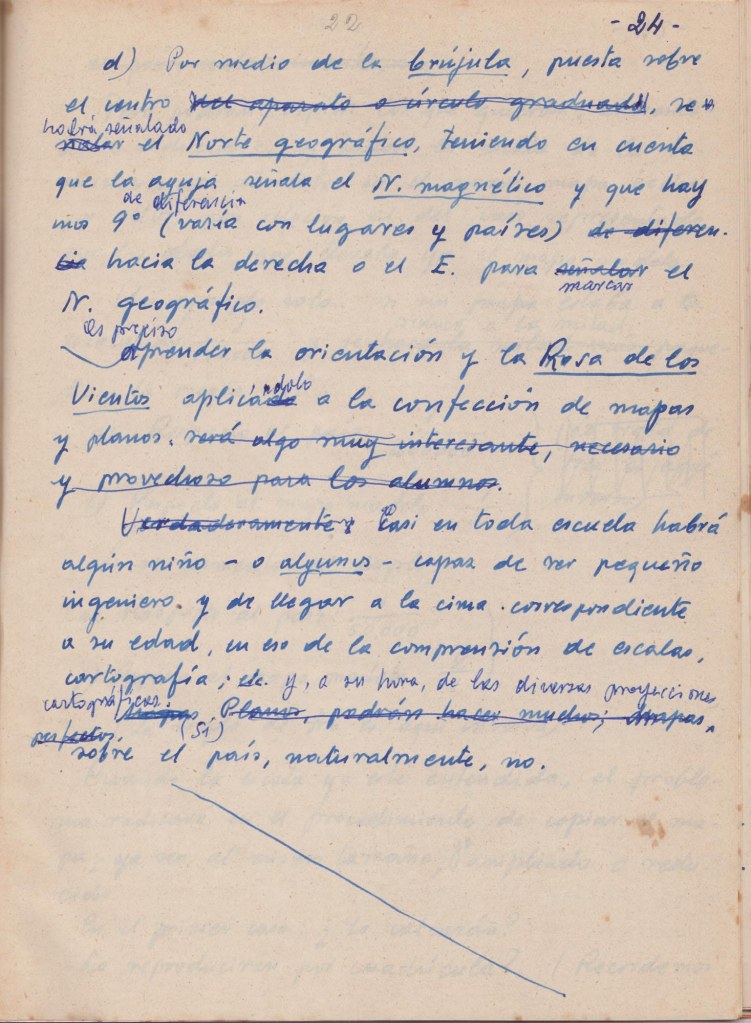 22
- 24 -
d) Por medio de la brújula, puesta sobre
el centro del aparato o círculo graduado, se
habrá señalado
ñalar el Norte geográfico, teniendo en cuenta
que la aguja señala el N. magnético y que hay
de diferencia
unos 9º (varía con lugares y países) de diferen-
cia hacia la derecha o el E. para señalar el
marcar
N. geográfico.
Es preciso
aprender la orientación y la Rosa de los
Vientos aplicándolo a la confección de mapas
y planos. será algo muy interesante, necesario
y provechoso para los alumnos.
Verdaderamente: Casi en toda escuela habrá
algún niño - o algunos - capaz de ser pequeño
ingeniero y de llegar a la cima correspondiente
a su edad, en eso de la comprensión de escalas,
cartografía; etc. y, a su hora, de las diversas proyecciones
cartográficas. Planos, podrán hacer muchos; Mapas,
perfectos. (Sí)
sobre el país, naturalmente, no.